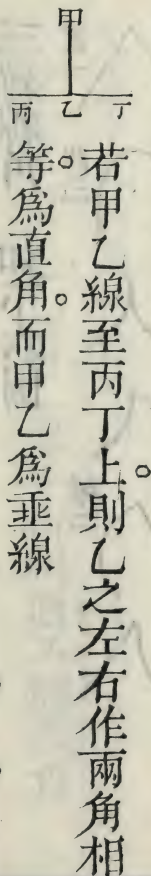 甲
丙 乙 丁
若甲乙線至丙丁上。則乙之左右作兩角相
等。爲直角。而甲乙爲垂線